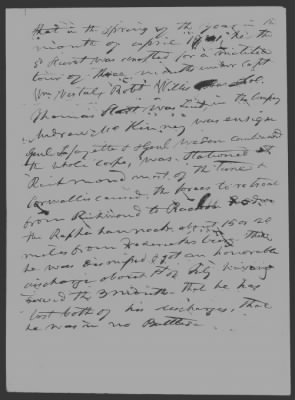 that in the spring of the year in the
month of April 1781, he the
sd Hurst was drafted for a militia
tour of three months under Capt
Wm Robt Wills Col.
Thomas was Lieut in the Company
Andrew McKinney was ensign
Genl Lafayette & Genl commanded
the whole corps, was stationed at
Richmond most of the time &
Cornwallis caused the troops to retreat
from Richmond to
the Raphahannock about 15 or 20
miles from Fredericksburg there
he was dismissed & got an honorable
discharge about 1st of July having
served the 3 months that he has
lost both of his discharges, that
he was in no Battles